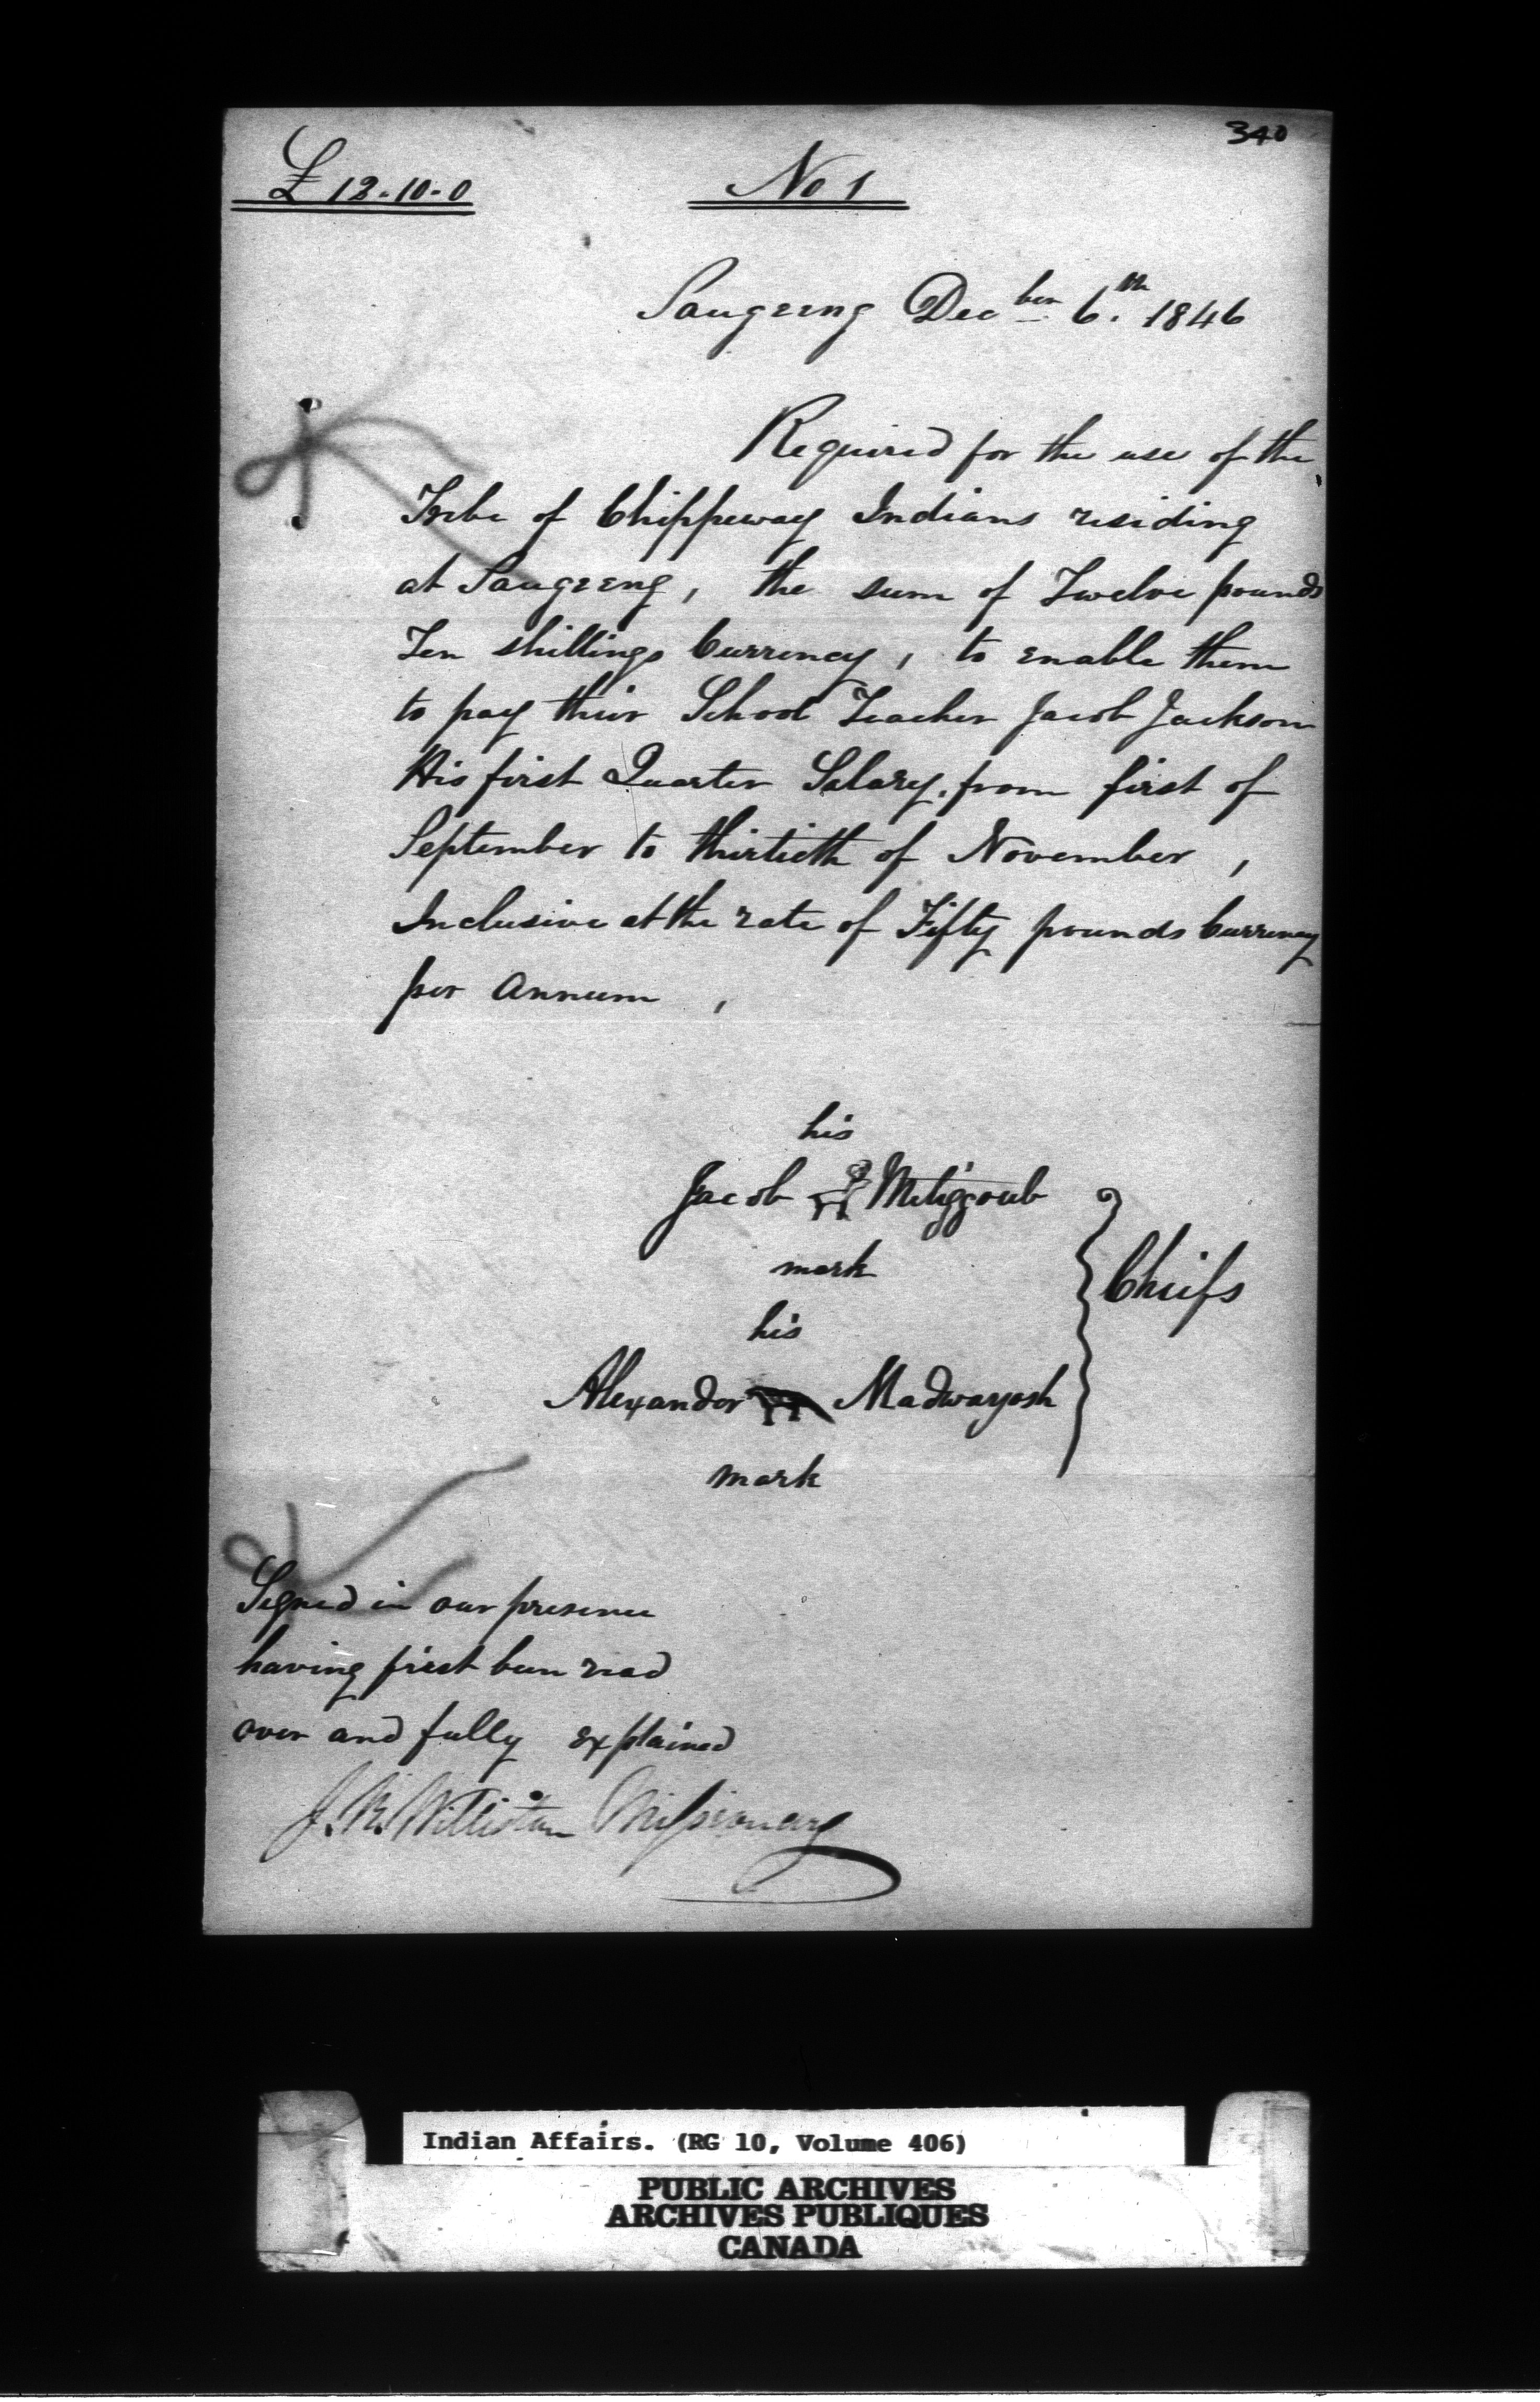 340
£12-10-0
No 1
Saugeeng Decber 6th. 1846
Required for the use of the
Tribe of Chippeway Indians residing
at Saugeeng, the sum of Twelve pounds
Ten shillings Currency, to enable them
to pay their School Teacher Jacob Jackson
His first Quarter Salary. from first of
September to thirtieth of November,
Inclusive at the rate of Fifty pounds Currency
per Annum,
his
Jacob Metiggoub
mark
Chiefs
his
Alexander Madwayosh
mark
Signed in our presence
having first been read
over and fully explained
J. K. Williston Missionary
Indian Affairs. (RG 10, Volume 406)
PUBLIC ARCHIVES
ARCHIVES PUBLIQUES
CANADA